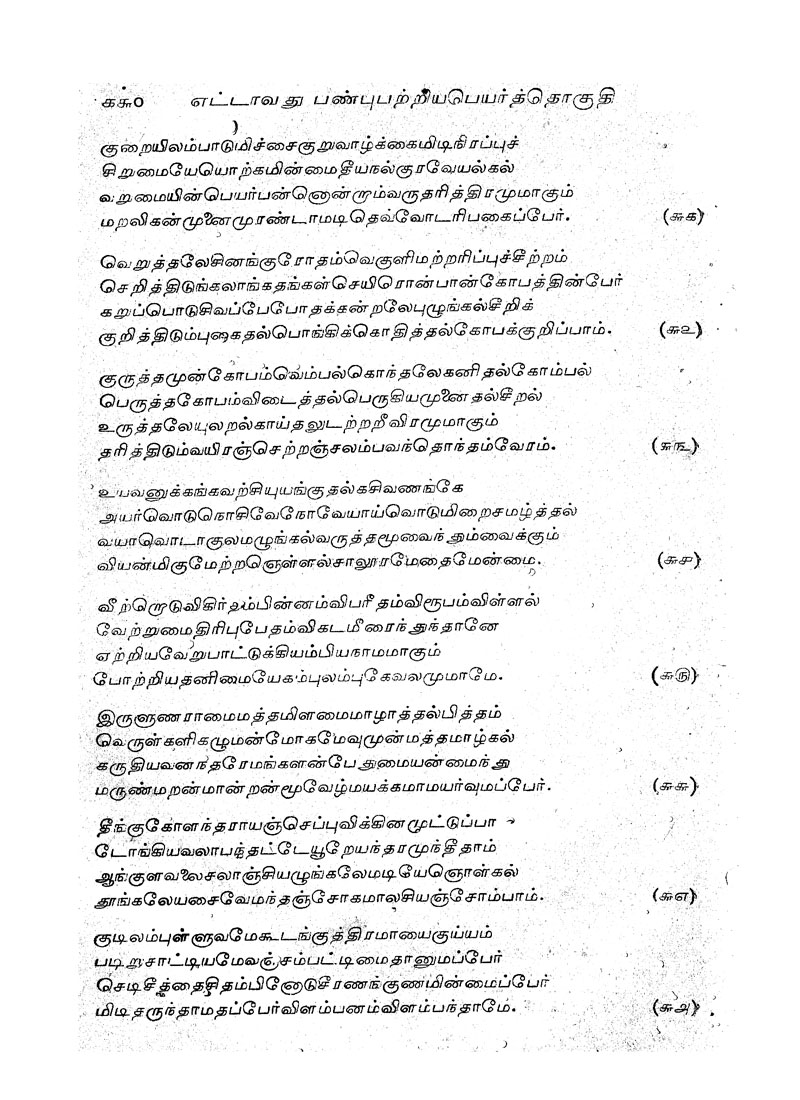 ௧௬௦ எட்டாவது பண்புபற்றியபெயர்த்தொகுதி
குறையிலம்பாடுமிச்சைகுறுவாழ்க்கைமிடிநிரப்புச்
சிறுமையேயொற்கமின்மைதீயநல்குரவேயல்கல்
வறுமையின்பெயர்பன்னொன்றும்வருதரித்திரமுமாகும்
மறலிகன்முனைமுரண்டாமடிதெவ்வோடரிபகைப்பேர். (௬௧)
வெறுத்தலேசினங்குரோதம்வெகுளிமற்றரிப்புச்சீற்றம்
செறித்திடுங்கலாங்கதங்கள்செயிரொன்பான்கோபத்தின்பேர்
கறுப்பொடுசிவப்பேபோதக்கன்றலேபுழுங்கல்சீறிக்
குறித்திடும்புகைதல்பொங்கிக்கொதித்தல்கோபக்குறிப்பாம். (௬௨)
குருத்தமுன்கோபம்வெம்பல்கொந்தலேகனிதல்கோம்பல்
பெருத்தகோபம்விடைத்தல்பெருகியமுனைதல்சீறல்
உருத்தலேயுலறல்காய்தலுடற்றறீவிரமுமாகும்
தரித்திடும்வயிரஞ்செற்றஞ்சலம்பவந்தொந்தம்வேரம். (௬௩)
உயவனுக்கங்கவற்சியுயங்குதல்கசிவணங்கே
அயர்வொடுநொசிவேநோவேயாய்வொடுமிறைசமழ்த்தல்
வயாவொடாகுலமழுங்கல்வருத்தமூவைந்தும்வைக்கும்
வியன்மிகுமேற்றஞெள்ளல்சாலூரமேதைமேன்மை. (௬௪)
வீற்றொடுவிகிர்தம்பின்னம்விபரீதம்விரூபம்விள்ளல்
வேற்றுமைதிரிபுபேதம்விகடமீரைந்துந்தானே
ஏற்றியவேறுபாட்டுக்கியம்பியநாமமாகும்
போற்றியதனிமையேகம்புலம்புகேவலமுமாமே. (௬௫)
இருளுணராமைமத்தமிளமைமாழாத்தல்பித்தம்
வெருள்களிகழுமன்மோகமேவுமுன்மத்தமாழ்கல்
கருதியவனந்தரேமங்களன்பேதுமையன்மைந்து
மருண்மறன்மான்றன்மூவேழ்மயக்கமாமயர்வுமப்பேர். (௬௬)
தீங்குகோளந்தராயஞ்செப்புவிக்கினமூட்டுப்பா
டோங்கியவலாபத்தட்டேயூறேயந்தரமுந்தீதாம்
ஆங்குளவலைசலாஞ்சியழுங்கலேமடியேஞொள்கல்
தூங்கலேயசைவேமந்தஞ்சோகமாலசியஞ்சோம்பாம். (௬௭)
குடிலம்புள்ளுவமேகூடங்குத்திரமாயைகுய்யம்
படிறுசாட்டியமேவஞ்சம்பட்டிமைதானுமப்பேர்
செடிசீத்தைசிதம்பினோடுசீரணங்குணமின்மைப்பேர்
மிடிதருந்தாமதப்பேர்விளம்பனம்விளம்பந்தாமே. (௬௮)